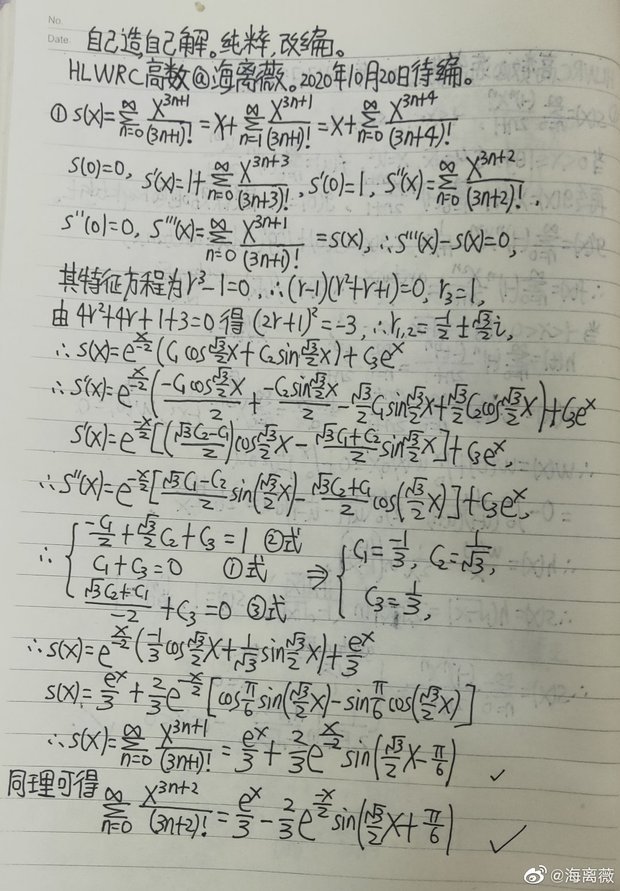 No.
Date
自己造,自己解。纯粹,改编。
HLWRC高数@海离薇。2020年10月20日待编。
① s(x)=∑_{n=0}^{∞} x^{3n+1}/(3n+1)! = x+∑_{n=1}^{∞} x^{3n+1}/(3n+1)! = x+∑_{n=0}^{∞} x^{3n+4}/(3n+4)!
s(0)=0, s'(x)=1+∑_{n=0}^{∞} x^{3n+3}/(3n+3)!, s'(0)=1, s''(x)=∑_{n=0}^{∞} x^{3n+2}/(3n+2)!,
s''(0)=0, s'''(x)=∑_{n=0}^{∞} x^{3n+1}/(3n+1)! =s(x), ∴s'''(x)-s(x)=0,
其特征方程为r³-1=0, ∴(r-1)(r²+r+1)=0, r₃=1,
由4r²+4r+1+3=0得(2r+1)²=-3, ∴r₁,₂=-1/2±(√3/2)i,
∴s(x)=e^{x/-2}(C₁cos(√3/2)x+C₂sin(√3/2)x)+C₃e^x
∴s'(x)=e^{x/-2}(-C₁cos(√3/2)x/2 + -C₂sin(√3/2)x/2 - (√3/2)C₁sin(√3/2)x+(√3/2)C₂cos(√3/2)x)+C₃e^x
s'(x)=e^{-x/2}[((√3C₂-C₁)/2)cos(√3/2)x-((√3C₁+C₂)/2)sin(√3/2)x]+C₃e^x,
∴s''(x)=e^{-x/2}[((√3C₁-C₂)/2)sin((√3/2)x)-((√3C₂+C₁)/2)cos((√3/2)x)]+C₃e^x,
∴ { -C₁/2+(√3/2)C₂+C₃=1 ②式
C₁+C₃=0 ①式 ⇒ { C₁=-1/3, C₂=1/√3,
(√3C₂+C₁)/-2+C₃=0 ③式 C₃=1/3,
∴s(x)=e^{x/-2}(-1/3 cos(√3/2)x+1/√3 sin(√3/2)x)+e^x/3
s(x)=e^x/3+(2/3)e^{-x/2}[cos(π/6)sin((√3/2)x)-sin(π/6)cos((√3/2)x)]
∴s(x)=∑_{n=0}^{∞} x^{3n+1}/(3n+1)! = e^x/3+(2/3)e^{x/-2}sin((√3/2)x-π/6) ✓
同理可得 ∑_{n=0}^{∞} x^{3n+2}/(3n+2)! = e^x/3-(2/3)e^{-x/2}sin((√3/2)x+π/6) ✓
@海离薇